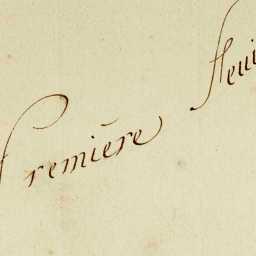 Première fleu